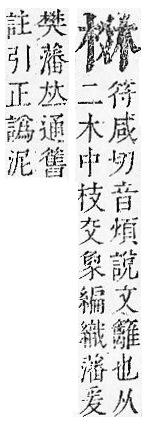 棥
符咸切音煩說文籬也从
二木中枝交象編織藩爰
樊藩𠀤通舊
註引正譌泥